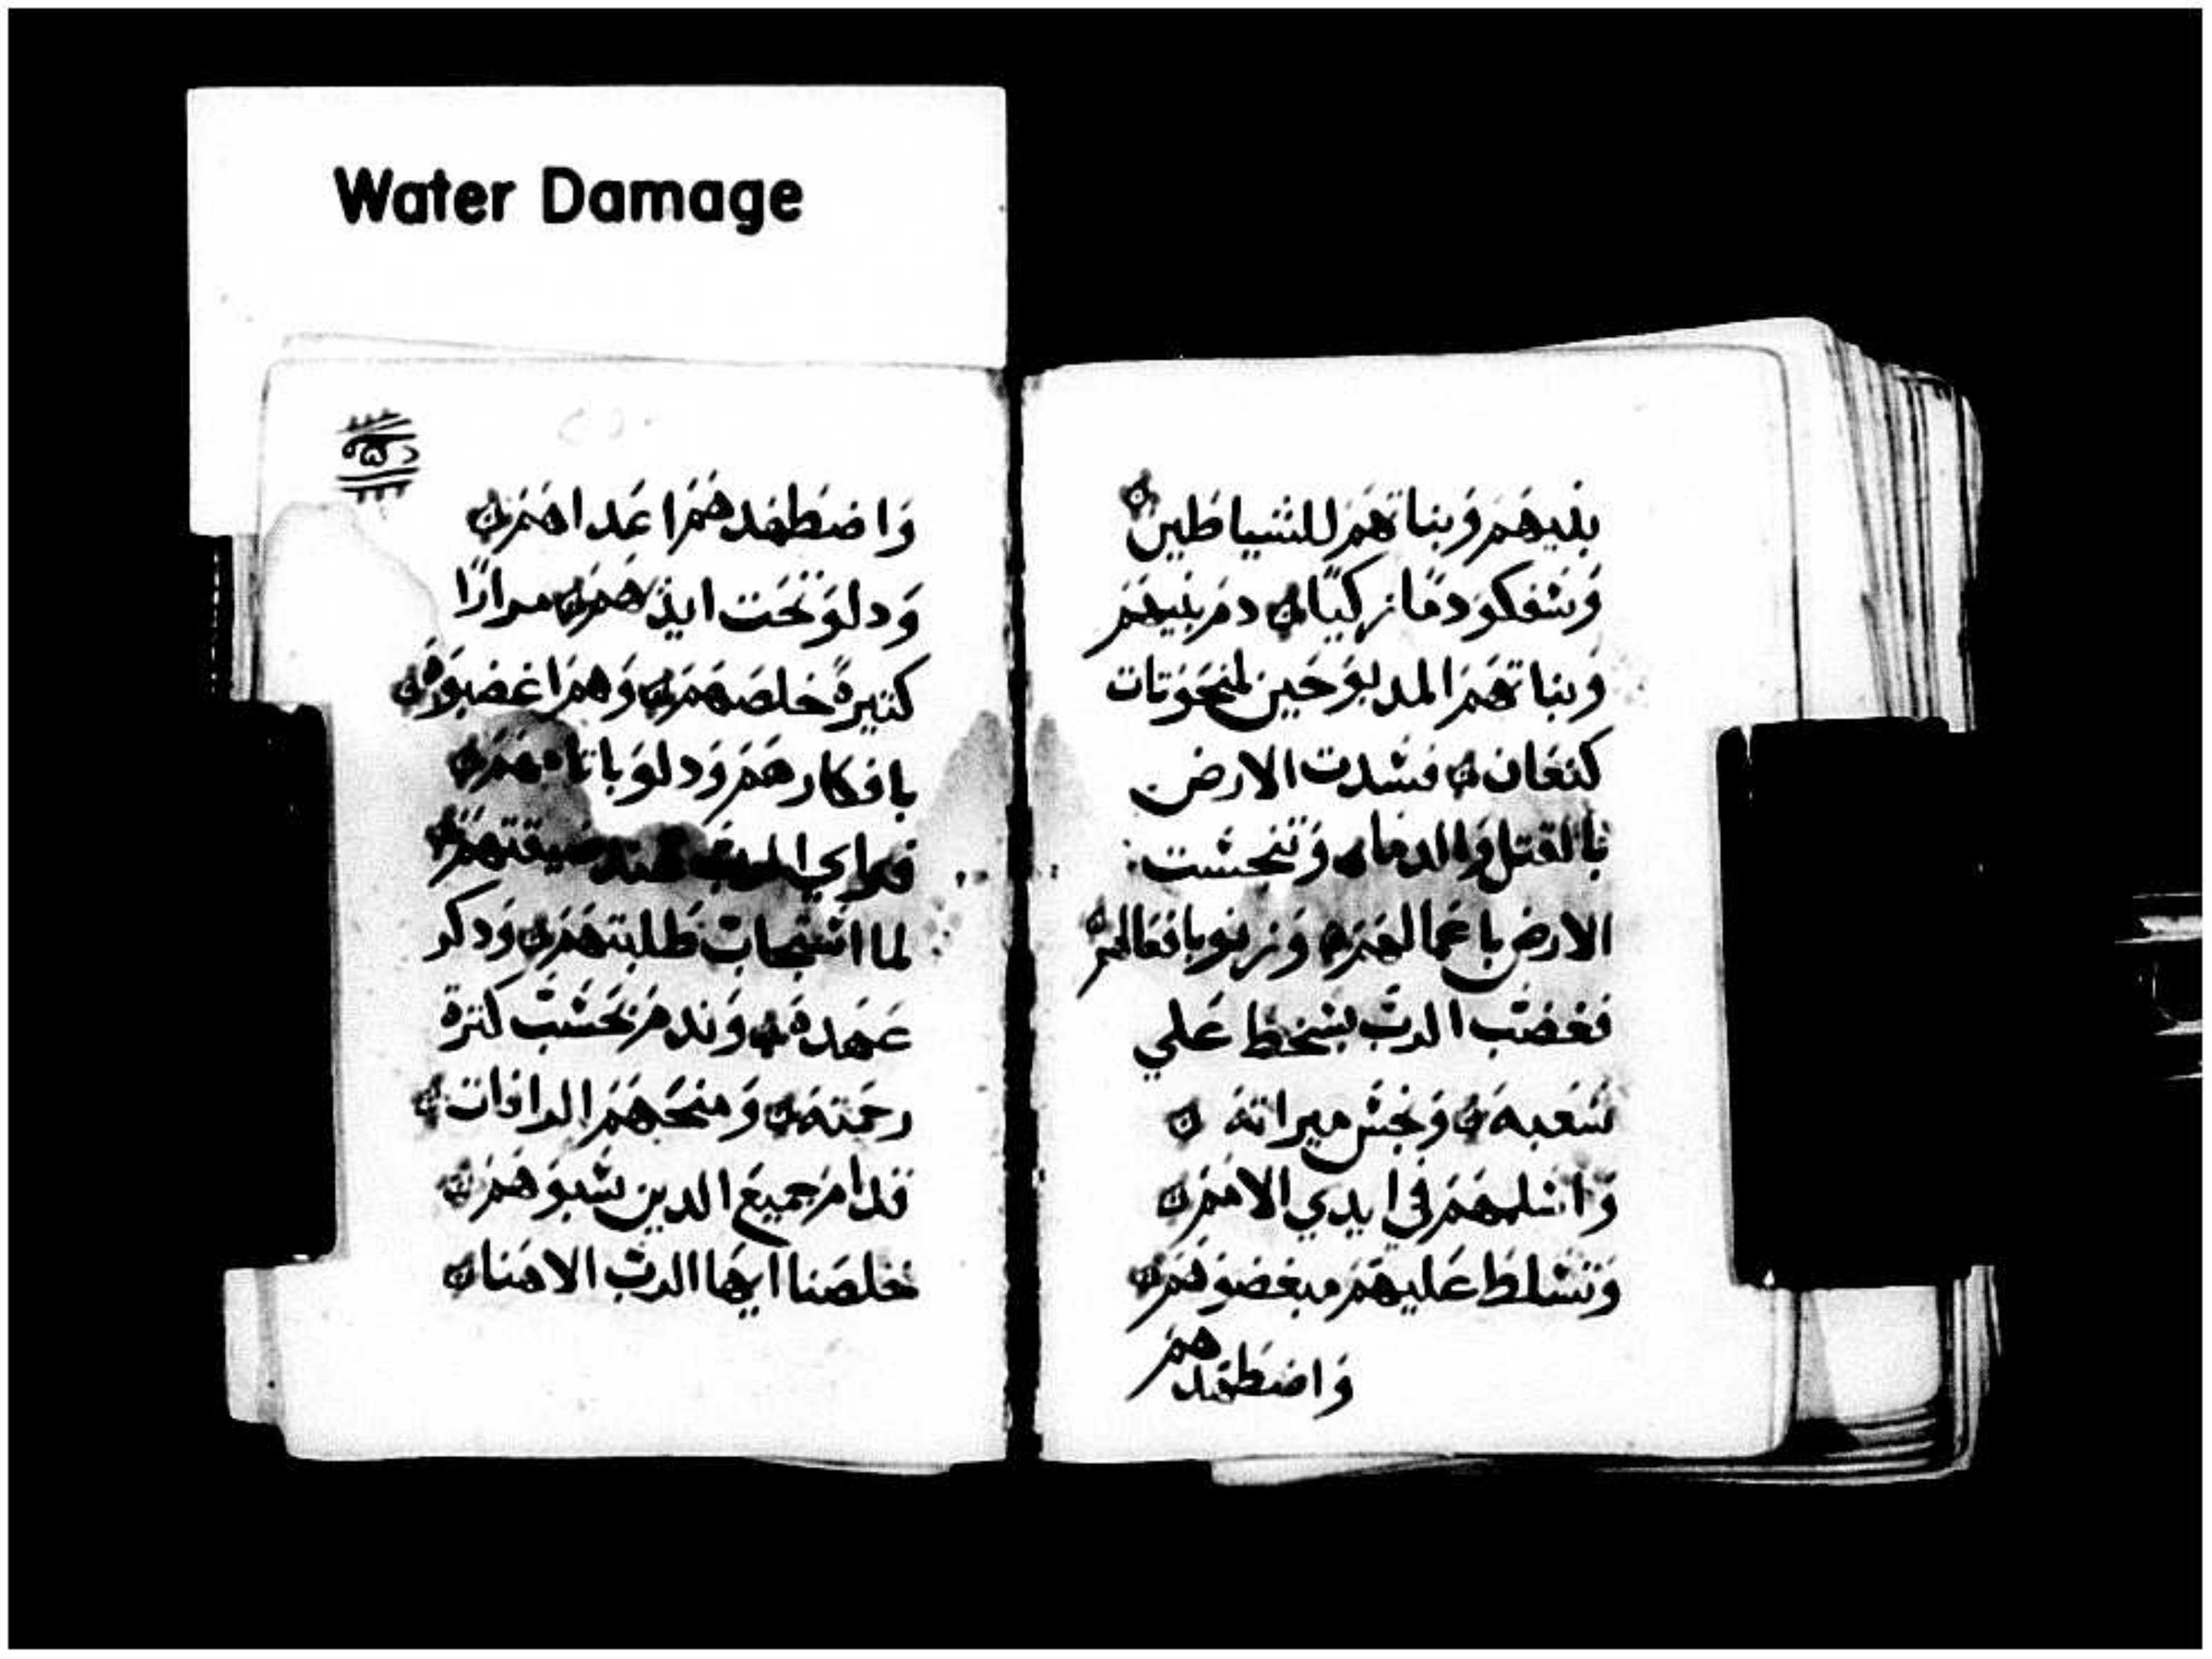 Water Damage
بنيهم وبناتهم للشياطين
وسفكو دما زكيا دم بنيهم
وبناتهم المدبوحين لمنحوتات
كنعان فسدت الارض
بالقتل والدما وتنجست
الارض باعمالهم وزنو بافعالهم
فغضب الرب بسخط علي
شعبه ونجس ميراثه
واسلمهم في ايدي الامم
وتسلط عليهم مبغضوهم
واضطهدهم
واضطهدهم اعداهم
ودلو تحت ايديهم مرارًا
كثيرة خلصهم وهم اغضبوه
بافكارهم ودلو باتامهم
فراي الرب عند ضيقتهم
لما استجاب طلبتهم ودكر
عهده وندم بحسب كثرة
رحمته ومنحهم الرافات
قدام جميع الدين سبوهم
خلصنا ايها الرب الاهنا